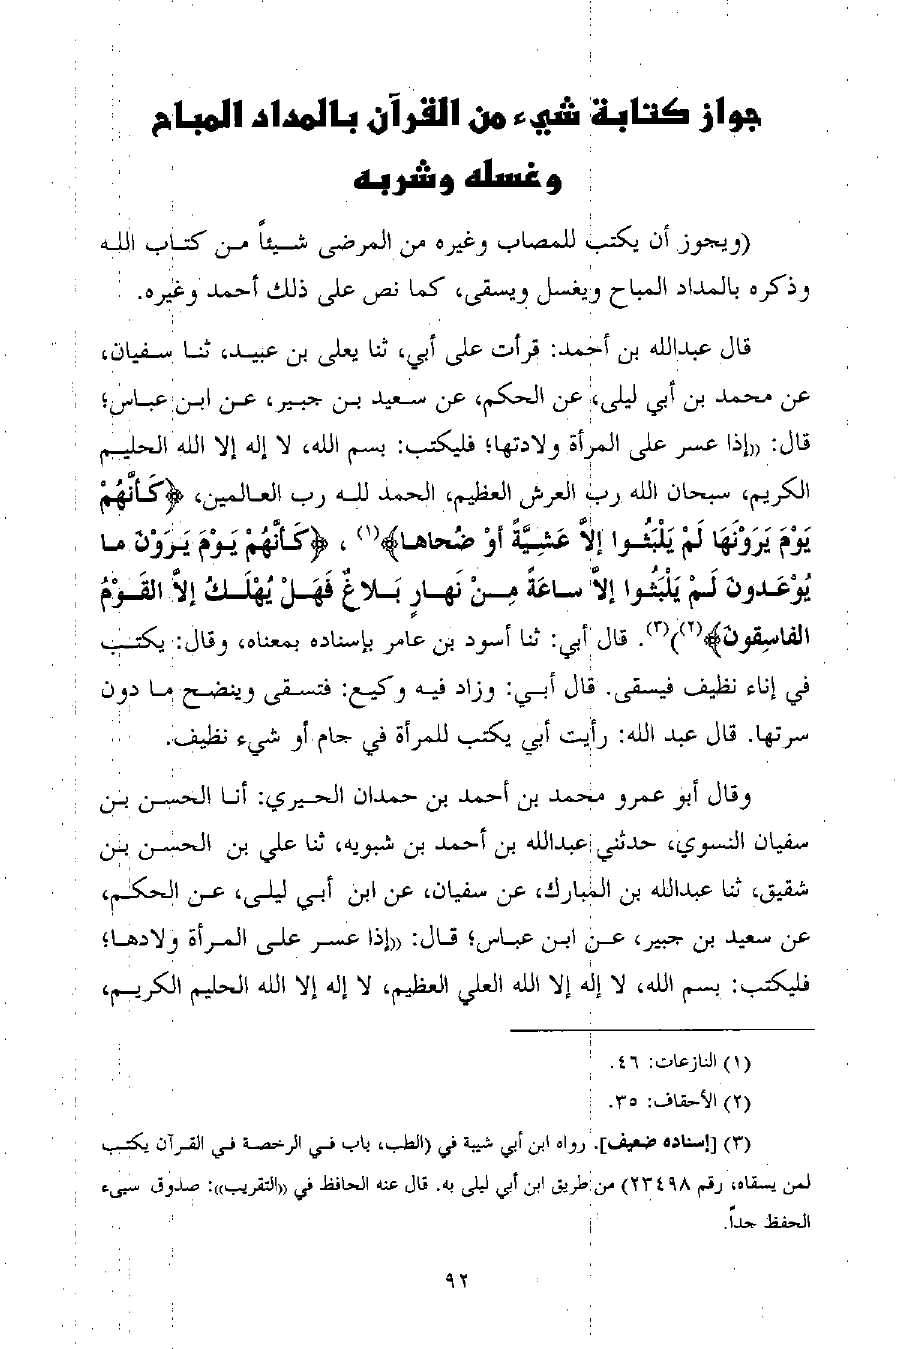 جواز كتابة شيء من القرآن بالمداد المباح
وغسله وشربه
(ويجوز أن يكتب للمصاب وغيره من المرضى شيئاً من كتاب الله
وذكره بالمداد المباح ويغسل ويسقى، كما نص على ذلك أحمد وغيره.
قال عبدالله بن أحمد: قرأت على أبي، ثنا يعلى بن عبيد، ثنا سفيان،
عن محمد بن أبي ليلى، عن الحكم، عن سعيد بن جبير، عن ابن عباس؛
قال: «إذا عسر على المرأة ولادتها؛ فليكتب: بسم الله، لا إله إلا الله الحليم
الكريم، سبحان الله رب العرش العظيم، الحمد لله رب العالمين، ﴿كَأَنَّهُمْ
يَوْمَ يَرَوْنَهَا لَمْ يَلْبَثُوا إلاَّ عَشِيَّةً أوْ ضُحاها﴾(١)، ﴿كَأنَّهُمْ يَوْمَ يَرَوْنَ ما
يُوْعَدونَ لَمْ يَلْبَثُوا إلاَّ ساعَةً مِنْ نَهارٍ بَلاغٌ فَهَلْ يُهْلَكُ إلاَّ القَوْمُ
الفاسِقونَ﴾(٢))(٣). قال أبي: ثنا أسود بن عامر بإسناده بمعناه، وقال: يكتب
في إناء نظيف فيسقى. قال أبي: وزاد فيه وكيع: فتسقى وينضح ما دون
سرتها. قال عبد الله: رأيت أبي يكتب للمرأة في جام أو شيء نظيف.
وقال أبو عمرو محمد بن أحمد بن حمدان الحيري: أنا الحسن بن
سفيان النسوي، حدثني عبدالله بن أحمد بن شبويه، ثنا علي بن الحسن بن
شقيق، ثنا عبدالله بن المبارك، عن سفيان، عن ابن أبي ليلى، عن الحكم،
عن سعيد بن جبير، عن ابن عباس؛ قال: «إذا عسر على المرأة ولادها؛
فليكتب: بسم الله، لا إله إلا الله العلي العظيم، لا إله إلا الله الحليم الكريم،
(١) النازعات: ٤٦.
(٢) الأحقاف: ٣٥.
(٣) [إسناده ضعيف]. رواه ابن أبي شيبة في (الطب، باب في الرخصة في القرآن يكتب
لمن يسقاه، رقم ٢٣٤٩٨) من طريق ابن أبي ليلى به. قال عنه الحافظ في «التقريب»: صدوق سيىء
الحفظ جداً.
٩٢